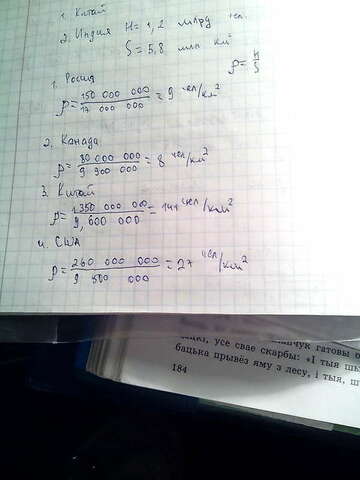 1. Китай
2. Индия H = 1,2 млрд чел.
S = 5,8 млн км²
ρ = H/S
1. Россия
ρ = 150 000 000 / 17 000 000 = 9 чел/км²
2. Канада
ρ = 80 000 000 / 9 900 000 = 8 чел/км²
3. Китай
ρ = 1350 000 000 / 9,600 000 = 141 чел/км²
4. США
ρ = 260 000 000 / 9 500 000 = 27 чел/км²
усе свае скарбы: «І тыя
бацька прывёз яму з лесу, і тыя, ш
184